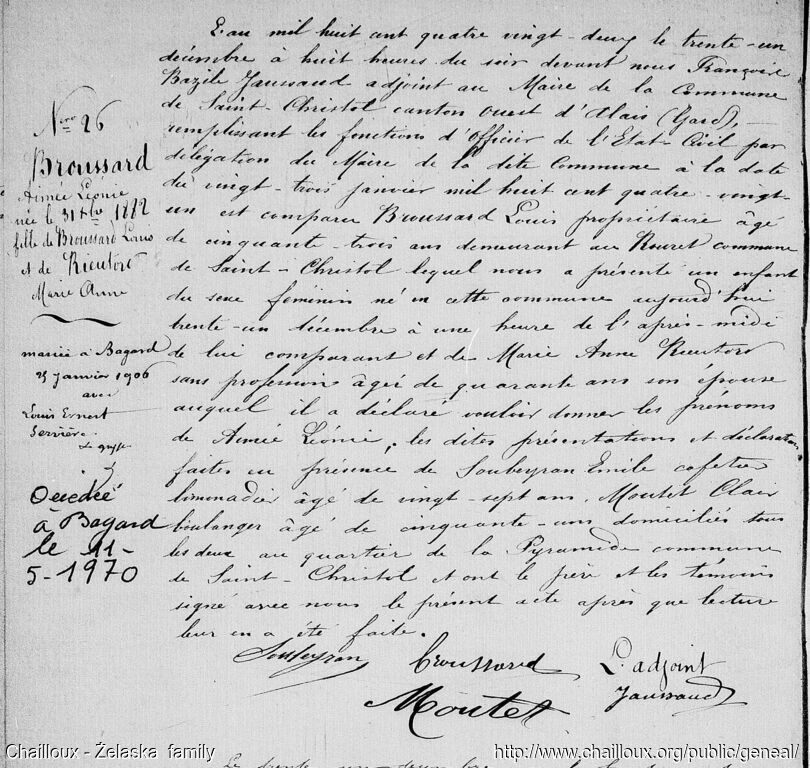 N° 26
Broussard
Aimée Léonie
née le 31 Xbre 1882
fille de Broussard Louis
et de Rieutord
Marie Anne
mariée à Bagard
25 Janvier 1906
avec
Louis Ernest
Serrière.
Le greffe
Décédée
à Bagard
le 11-
5-1970
L'an mil huit cent quatre vingt-deux le trente-un
décembre à huit heures du soir devant nous François
Bazile Jaussaud adjoint au Maire de la Commune
de Saint-Christol canton ouest d'Alais (Gard),
remplissant les fonctions d'Officier de l'Etat-Civil par
délégation du Maire de la dite Commune à la date
du vingt-trois janvier mil huit cent quatre-vingt-
un est comparu Broussard Louis propriétaire âgé
de cinquante-trois ans demeurant au Rouret commune
de Saint-Christol lequel nous a présenté un enfant
du sexe féminin né en cette commune aujourd'hui
trente-un décembre à une heure de l'après-midi
de lui comparant et de Marie Anne Rieutord
sans profession âgée de quarante ans son épouse
auquel il a déclaré vouloir donner les prénoms
de Aimée Léonie, les dites présentations et déclaration
faites en présence de Soubeyran Emile cafetier
limonadier âgé de vingt-sept ans, Moutet Clair
boulanger âgé de cinquante-uns domiciliés tous
les deux au quartier de la Pyramide commune
de Saint-Christol et ont le père et les témoins
signé avec nous le présent acte après que lecture
leur en a été faite.
Soubeyran Broussard L'adjoint
Moutet Jaussaud
Chailloux - Żelaska family
http://www.chailloux.org/public/geneal/